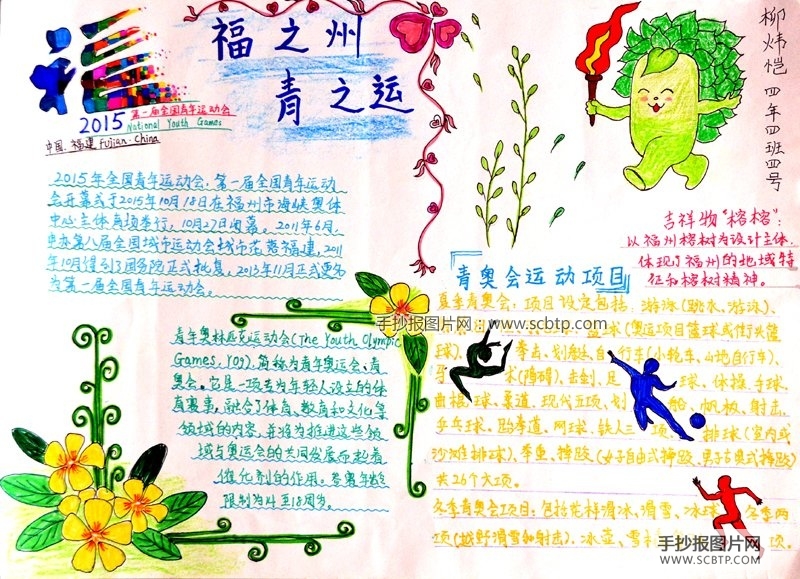 福之州
青之运
2015 第一届全国青年运动会
National Youth Games
中国·福建 Fujian·China
柳炜恺 四年四班四号
2015年全国青年运动会:第一届全国青年运动
会开幕式于2015年10月18日在福州市海峡奥体
中心主体育场举行,10月27日闭幕。2011年6月,
申办第八届全国城市运动会城市花落福建,2011
年10月得到了国务院正式批复,2013年11月正式更名
为第一届全国青年运动会。
吉祥物"榕榕":
以福州榕树为设计主体,
体现了福州的地域特
征和榕树精神。
青年奥林匹克运动会(The Youth Olympic
Games, YOG),简称为青年奥运会、青
奥会。它是一项专为年轻人设立的体
育赛事,融合了体育、教育和文化等
领域的内容,并将为推进这些领
域与奥运会的共同发展而起着
催化剂的作用。参赛年龄
限制为14至18周岁。
青奥会运动项目
夏季青奥会:项目设定包括:游泳(跳水、游泳)、
篮球(奥运项目篮球或街头篮
球)、拳击、划艇、自行车(小轮车、山地自行车)、
术(障碍)、击剑、足球、体操、手球、
曲棍球、柔道、现代五项、划船、帆板、射击、
乒乓球、跆拳道、网球、铁人三项、排球(室内或
沙滩排球)、举重、摔跤(女子自由式摔跤、男子古典式摔跤)
共26个大项。
冬季青奥会项目:包括花样滑冰、滑雪、冰球、冬季两
项(越野滑雪和射击)、冰壶、雪 项。
手抄报图片网 www.scbtp.com
手抄报图片网
WWW.SCBTP.COM